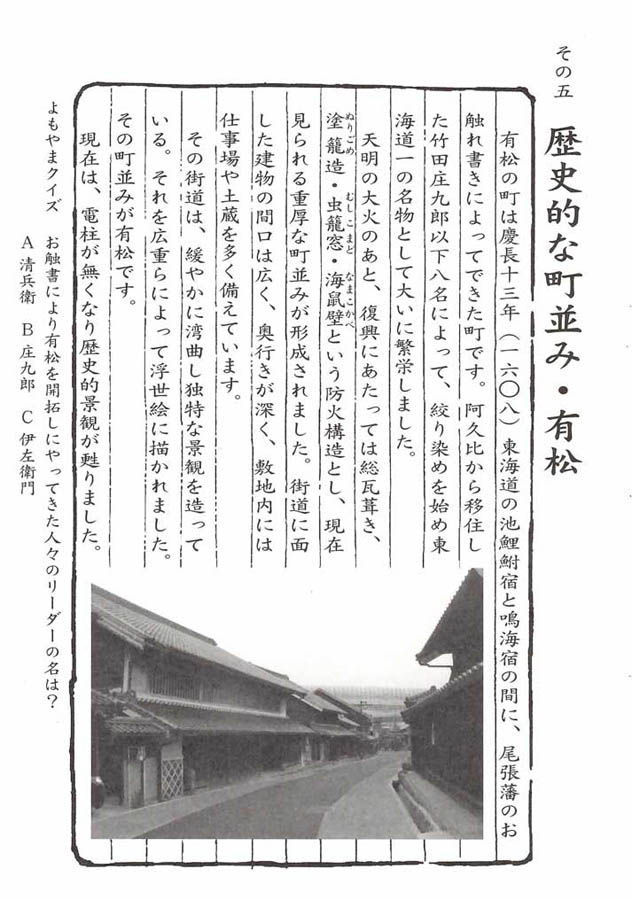 その五
歴史的な町並み・有松
有松の町は慶長十三年（一六〇八）東海道の池鯉鮒宿と鳴海宿の間に、尾張藩のお
触れ書きによってできた町です。阿久比から移住し
た竹田庄九郎以下八名によって、絞り染めを始め東
海道一の名物として大いに繁栄しました。
天明の大火のあと、復興にあたっては総瓦葺き、
塗籠造・虫籠窓・海鼠壁という防火構造とし、現在
ぬりごめ むしこまど なまこかべ
見られる重厚な町並みが形成されました。街道に面
した建物の間口は広く、奥行きが深く、敷地内には
仕事場や土蔵を多く備えています。
その街道は、緩やかに湾曲し独特な景観を造って
いる。それを広重らによって浮世絵に描かれました。
その町並みが有松です。
現在は、電柱が無くなり歴史的景観が甦りました。
よもやまクイズ お触書により有松を開拓しにやってきた人々のリーダーの名は？
A 清兵衛 B 庄九郎 C 伊左衛門